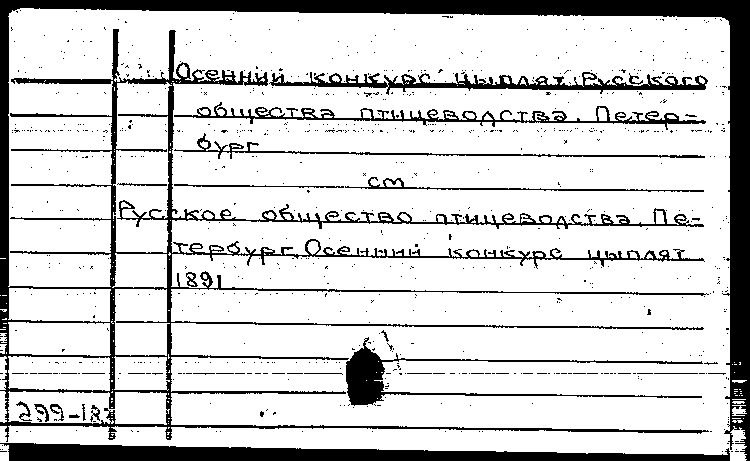 Осенний конкурс цыплят Русского
общества птицеводства. Петер-
бург
см
Русское общество птицеводства. Пе-
тербург. Осенний конкурс цыплят
1891